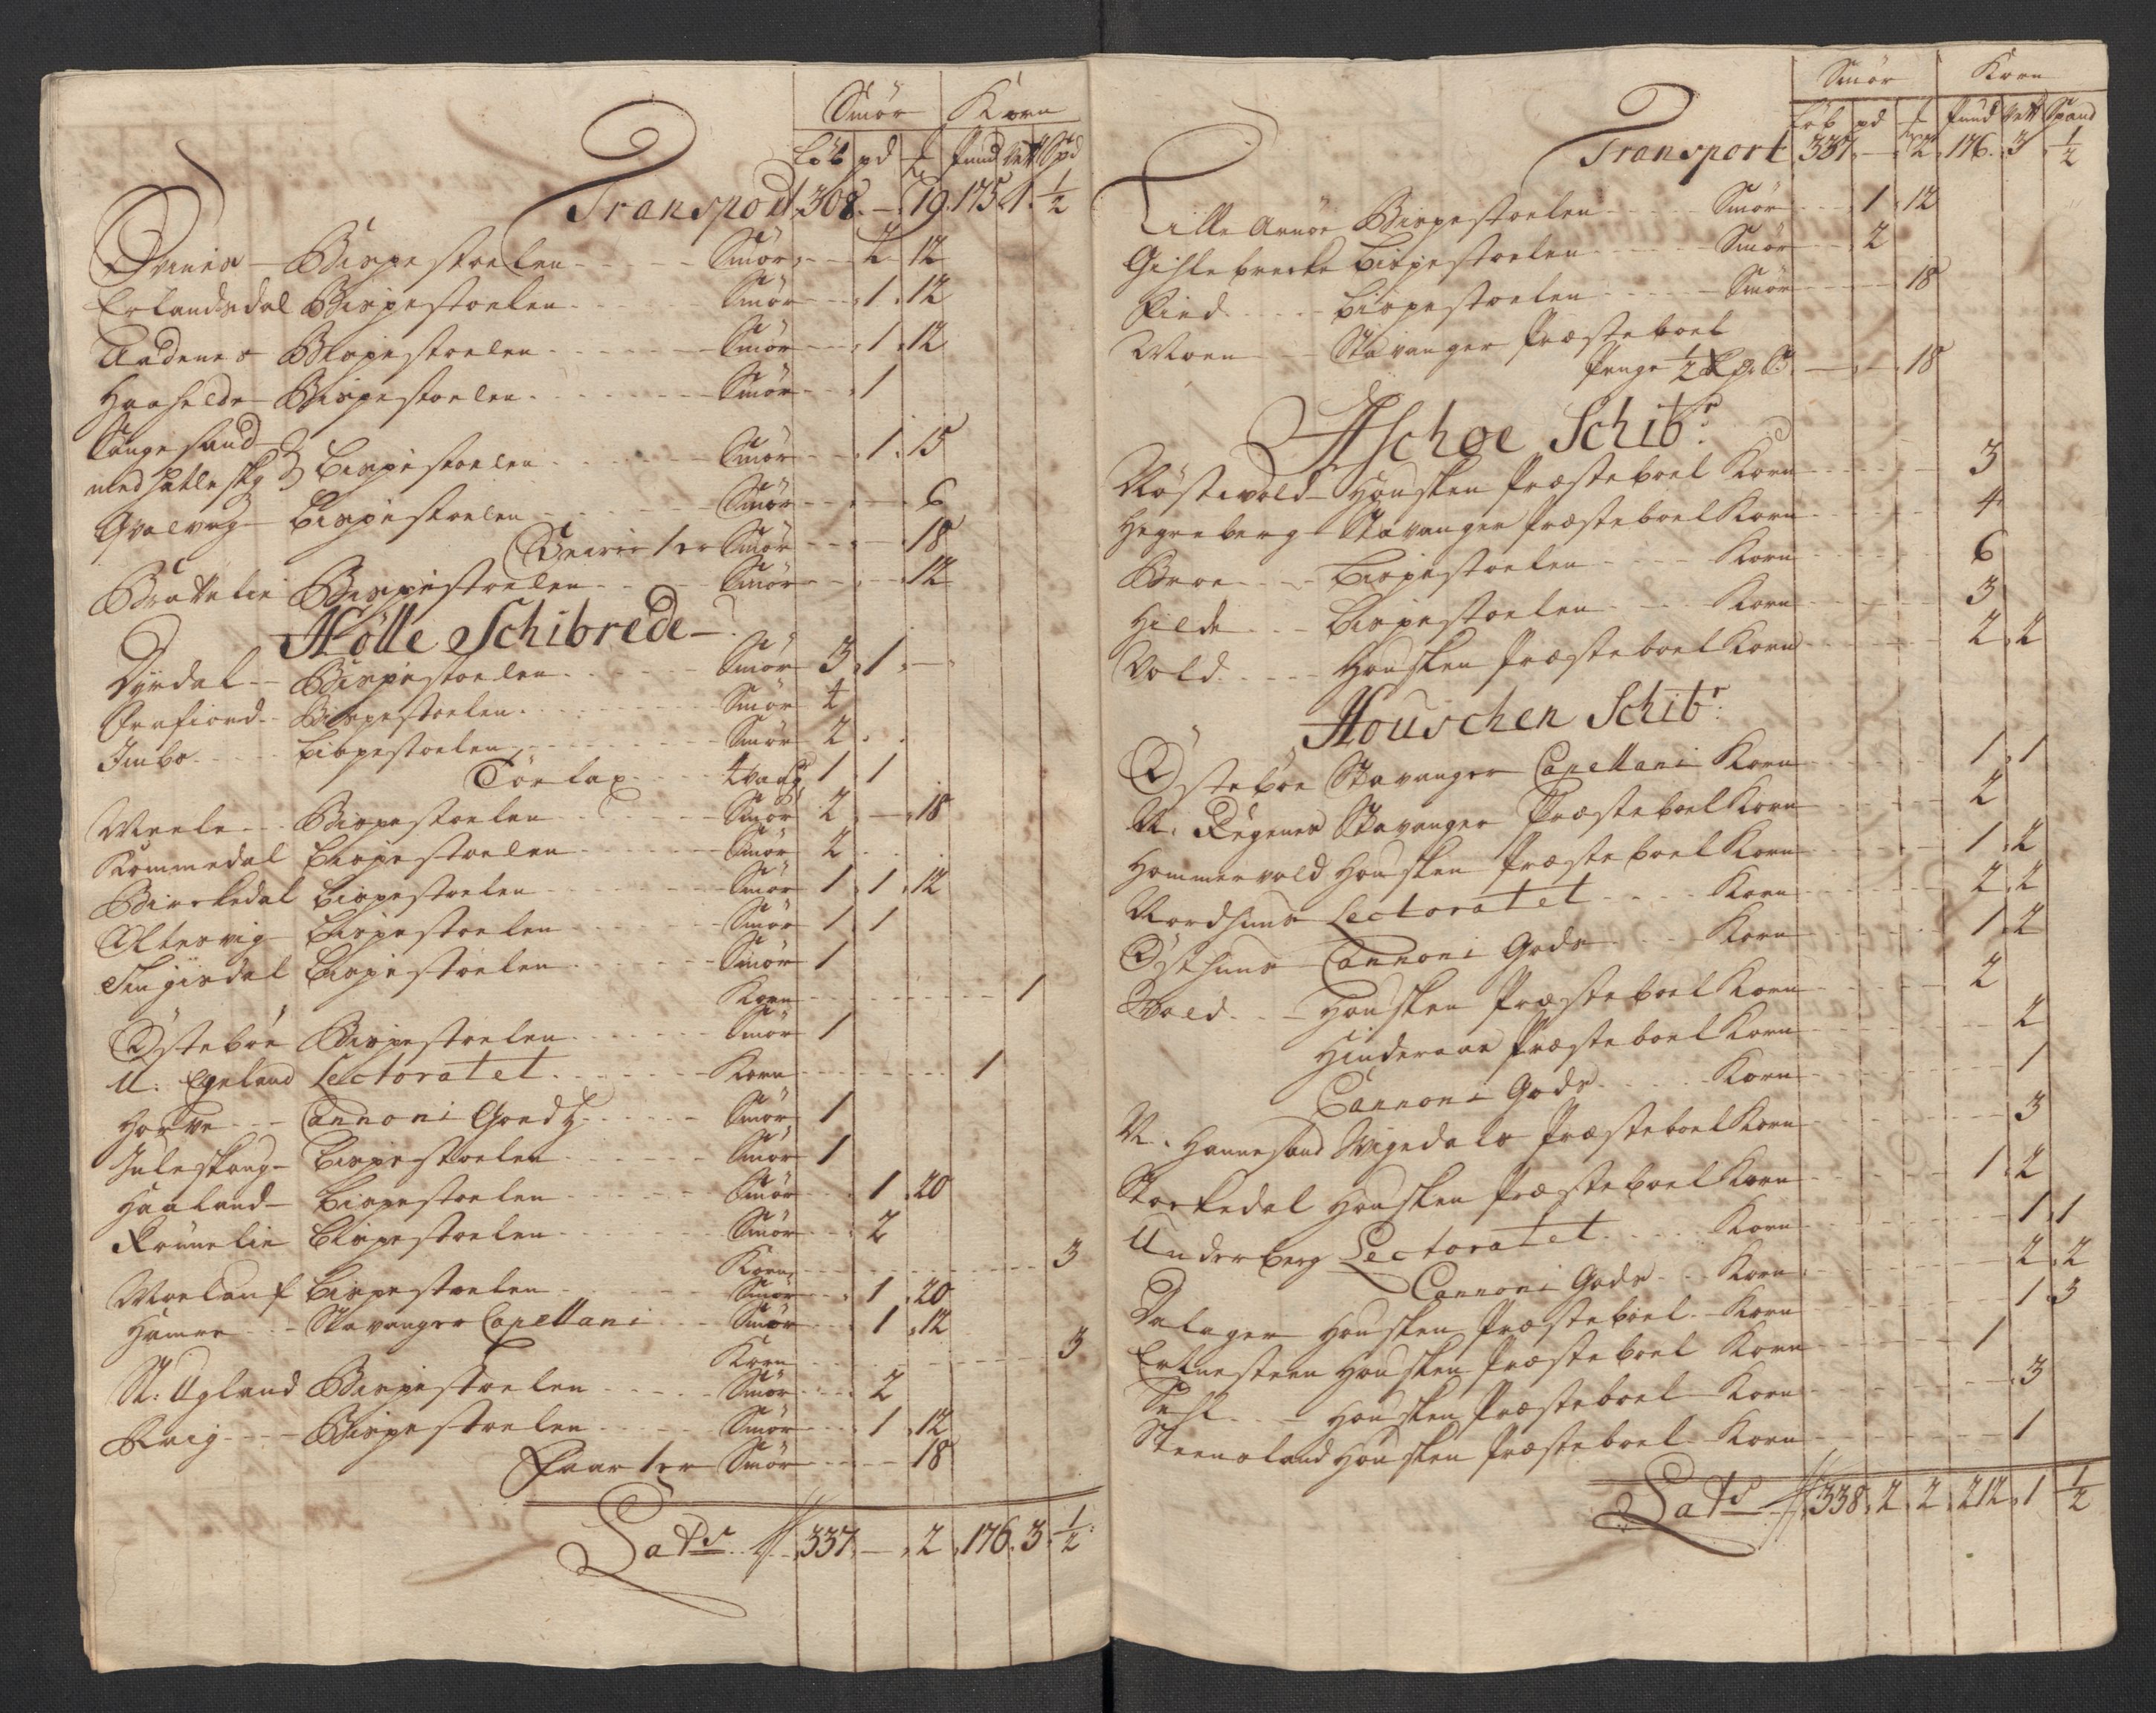 Smör Korn
Löb pd ℔ Pund Vett Spd
Transport 308 — 19 175 1 ½
Qvines Bispestoelen Smör 2 12
Erlandsdal Bispestoelen Smör 1 12
Aadenes Bispestoelen Smör 1 12
Haahelde Bispestoelen Smör 1
Tangesand
med hatleskg Bispestoelen Smör 1 15
Qvalvog Bispestoelen Smör 6
1 er Smör 18
Brattelie Bispestoelen Smör 12
Hölle Schibrede
Dyrdal Bispestoelen Smör 3 1 —
Frafiord Bispestoelen Smör 4
Imbs Bispestoelen Smör 2
Tör lax 4 vaag 1 1
Meele Bispestoelen Smör 2 — 18
Kommedal Bispestoelen Smör 2
Birckedal Bispestoelen Smör 1 1 12
Oltesvig Bispestoelen Smör 1 1
Tengisdal Bispestoelen Smör 1
Korn 1
Östeböe Bispestoelen Smör 1
U. Egeland Lectoratet Korn 1
Horve Cannoni Goedtz Smör 1
Juleskoug Bispestoelen Smör 1
Haaland Bispestoelen Smör 1 20
Rönnelie Bispestoelen Smör 2
Korn 3
Moelauf Bispestoelen Smör 1 20
Hamre Stavanger Capellani Smör 1 12
Korn 3
St: Ugland Bispestoelen Smör 2
Bispestoelen Smör 1 12
Faar 1 er Smör 18
Lats 337 — 2 176 3 ½
Smör Korn
Löb pd ℔ Pund Vett Spand
Transport 337 — 2 176 3 ½
Lille Arnöe Bispestoelen Smör 1 12
Gislebrecke Bispestoelen Smör 2
Bispestoelen Smör 18
Moen Stavanger Præsteboel
Penge ½ 18
Aschøe Schibr:
Nöstevold Housken Præsteboel Korn 3
Hegreberg Stavanger Præsteboel Korn 4
Broe Bispestoelen Korn 6
Hilde Bispestoelen Korn 3
Vold Housken Præsteboel Korn 2 2
Houschen Schibr:
Östeböe Stavanger Capellani Korn 1 1
N. Regenes Stavanger Præsteboel Korn 2
Hommersvold Housken Præsteboel Korn 1 2
Nordhuus Lectoratet Korn 2 2
Östhuus Cannoni Gods Korn 1 2
Vold Housken Præsteboel Korn 2
Hinderaae Præsteboel Korn 2
Cannoni Gods Korn 1
N. Hannesand Wigedals Præsteboel Korn 3
Stockedal Housken Præsteboel Korn 1 2
Underberg Lectoratet Korn 1 1
Cannoni Gods Korn 2 2
Dalager Housken Præsteboel Korn 1 3
Erlnesteen Housken Præsteboel Korn 1
Housken Præsteboel Korn 3
Steensland Housken Præsteboel Korn 1
Lats 338 2 2 212 1 ½